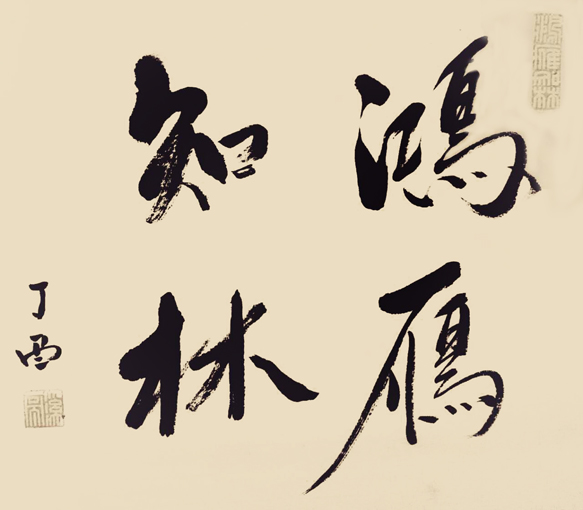 鴻雁
知林
丁酉